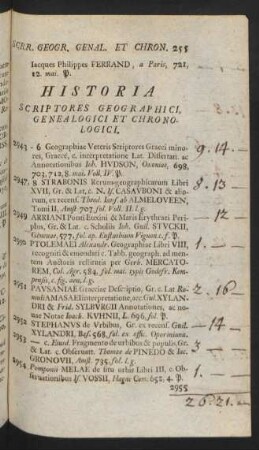 SCRR. GEOGR. GENAL. ET CHRON. 255
Iacques Philippes FERRAND, a Paris, 721,
12. mai. P.
HISTORIA
SCRIPTORES GEOGRAPHICI,
GENEALOGICI ET CHRONO-
LOGICI.
2943 - 6 Geographiae Veteris Scriptores Graeci mino-
res, Graecè, c. interpretatione Lat. Dissertatt. ac
Annotationibus Ioh. HVDSON, Oxoniae, 698,
703, 712, 8. mai. Voll. IV. P.
9. 14.
2947. 8 STRABONIS Rerum geographicarum Libri
XVII, Gr. & Lat. c. N. If. CASAVBONI & alio-
rum, ex recens. Theod. Ians. ab ALMELOVEEN,
Tomi II. Amst 707. fol. Voll. II. l. g.
8. 13
2949 ARRIANI Ponti Euxini & Maris Erythraei Peri-
plus, Gr. & Lat. c. Scholiis Ioh. Guil. STVCKII,
Genevae, 577, fol. ap. Eustathium Vignon. c. f. P.
12
2950 PTOLEMAEI Alexandr. Geographiae Libri VIII,
recogniti & emendati c. Tabb. geograph. ad men-
tem Auctoris restitutis per Gerh. MERCATO-
REM, Col. Agr. 584, fol. mai. typis Godefr. Kem-
pensis, c. fig. aen. l. g.
1.
2951 PAVSANIAE Graeciae Descriptio, Gr. c. Lat Ro-
muli AMASAEI interpretatione, acc. Gul. XYLAN-
DRI & Frid. SYLBVRGII Annotationes, ac no-
vae Notae Ioach. KVHNII, L. 696, fol. P.
2. 16
2952 STEPHANVS de Vrbibus, Gr. ex recens. Guil.
XYLANDRI, Bas. 568, fol. ex offic. Oporiniana.
14
2953 - c. Eiusd. Fragmento de vrbibus & populis Gr.
& Lat. c. Observatt. Thomae de PINEDO & Iac.
GRONOVII, Amst. 735, fol. l. g.
1.
2954 Pomponii MELAE de situ orbis Libri III, c. Ob-
servationibus If. VOSSII, Hagae Com. 652. 4. P.
2955
26. 21.